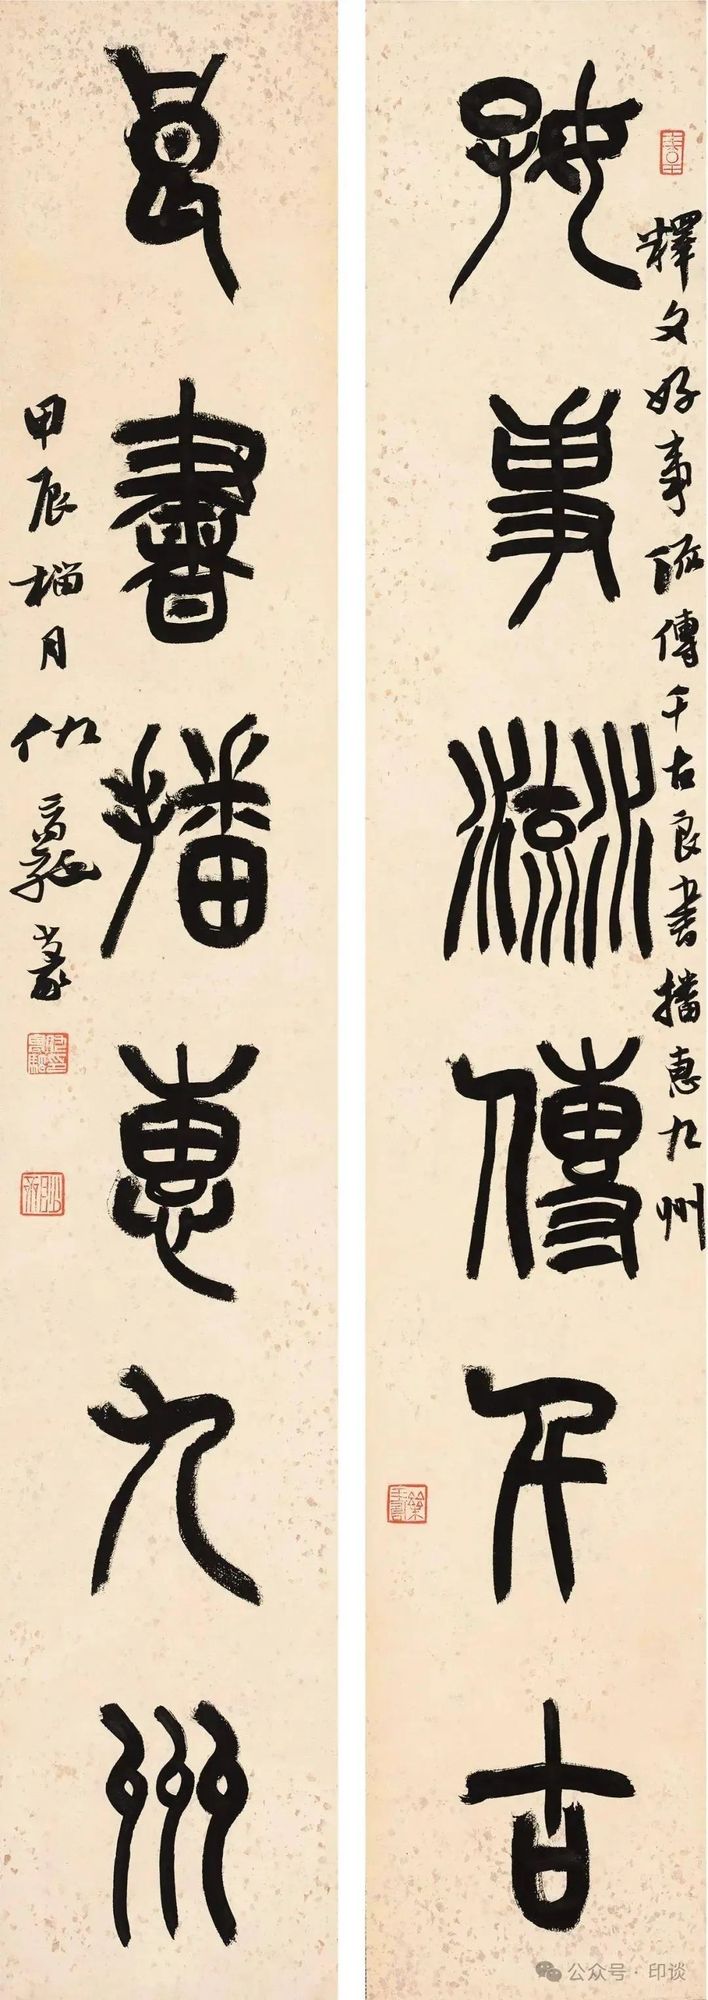 好事流傳千古
釋文好事流傳千古良書播惠九州
良書播惠九州
甲辰榴月仇高馳篆
公众号·印谈